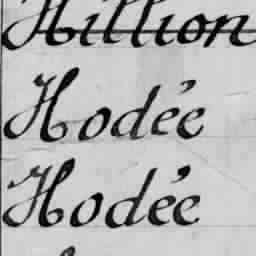 Hillion
Hodée
Hodée